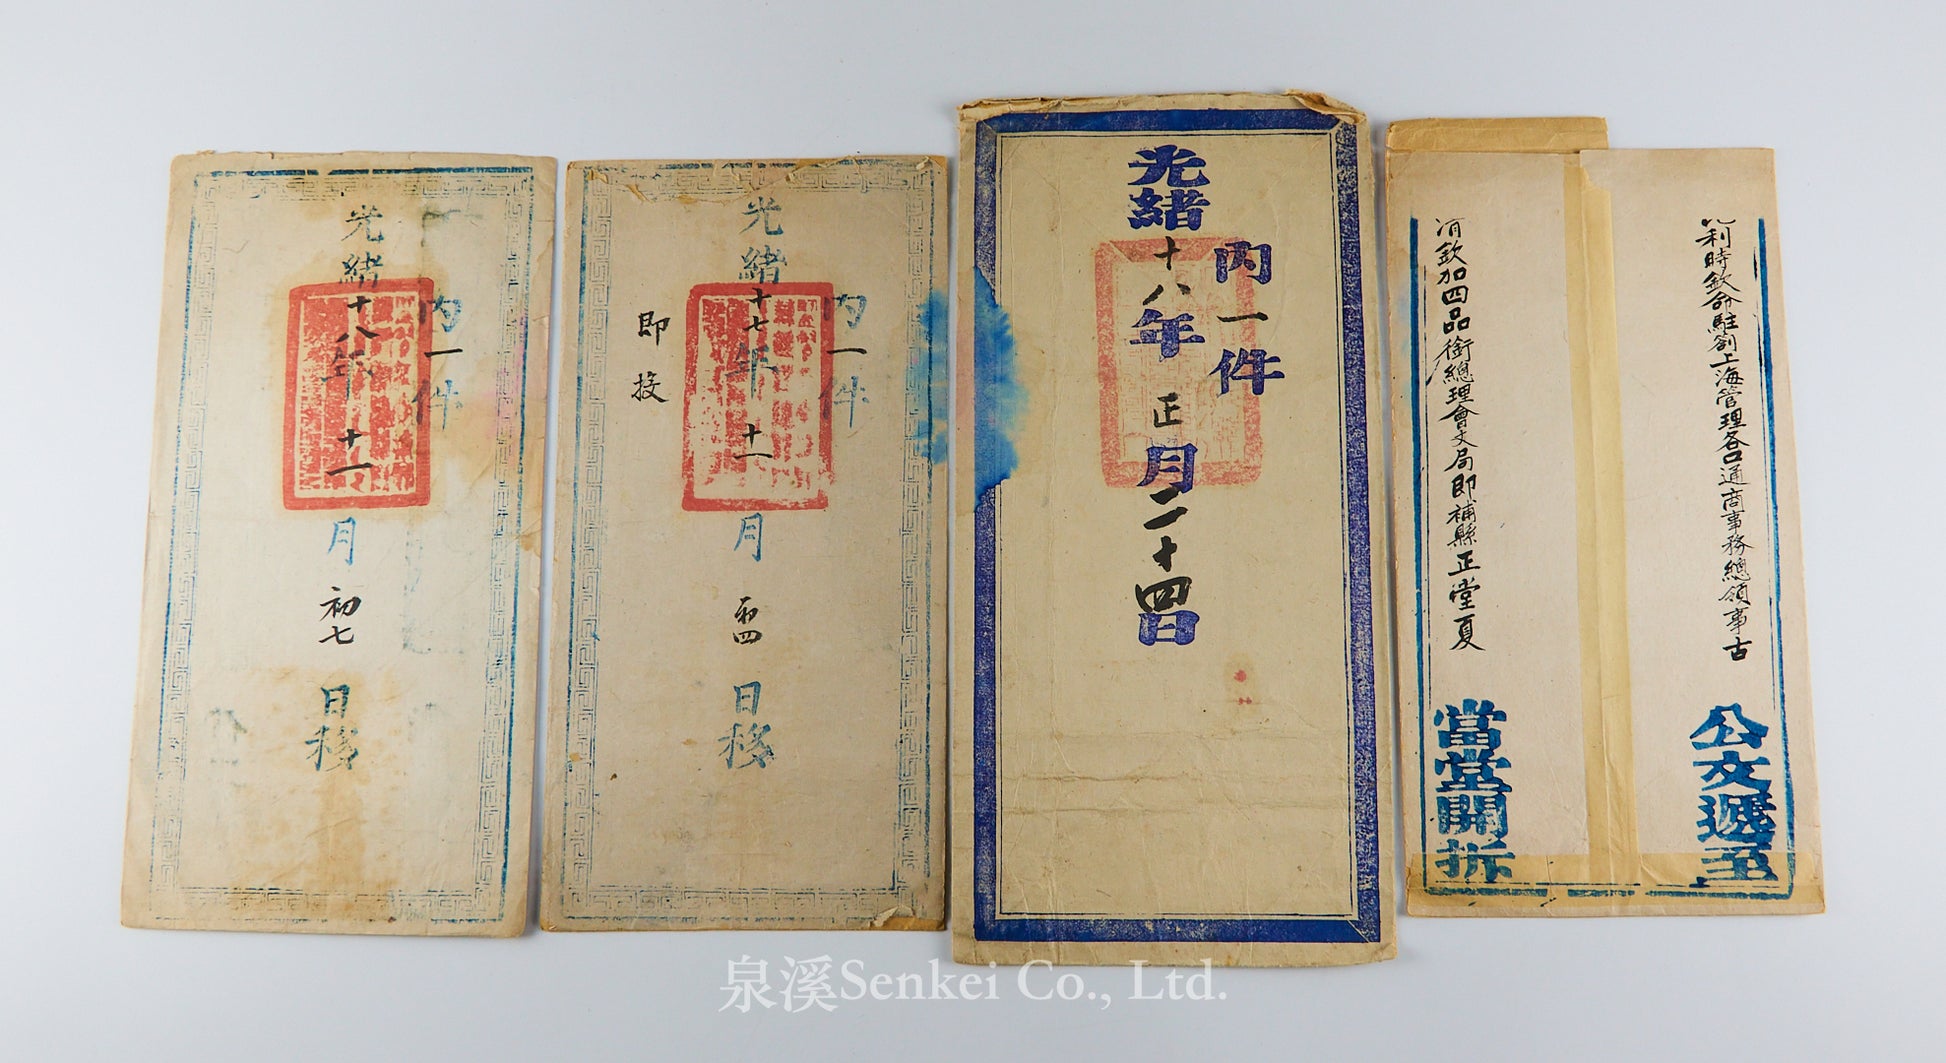 光緒十八年十一月初七日移
內一件
光緒十七年十一月初四日移
內一件
即投
光緒十八年正月二十四日
內一件
利時欽命駐劄上海管理各口通商事務總領事古
公文遞至
欽加四品銜總理會丈局即補縣正堂夏
當堂開拆
泉溪Senkei Co., Ltd.